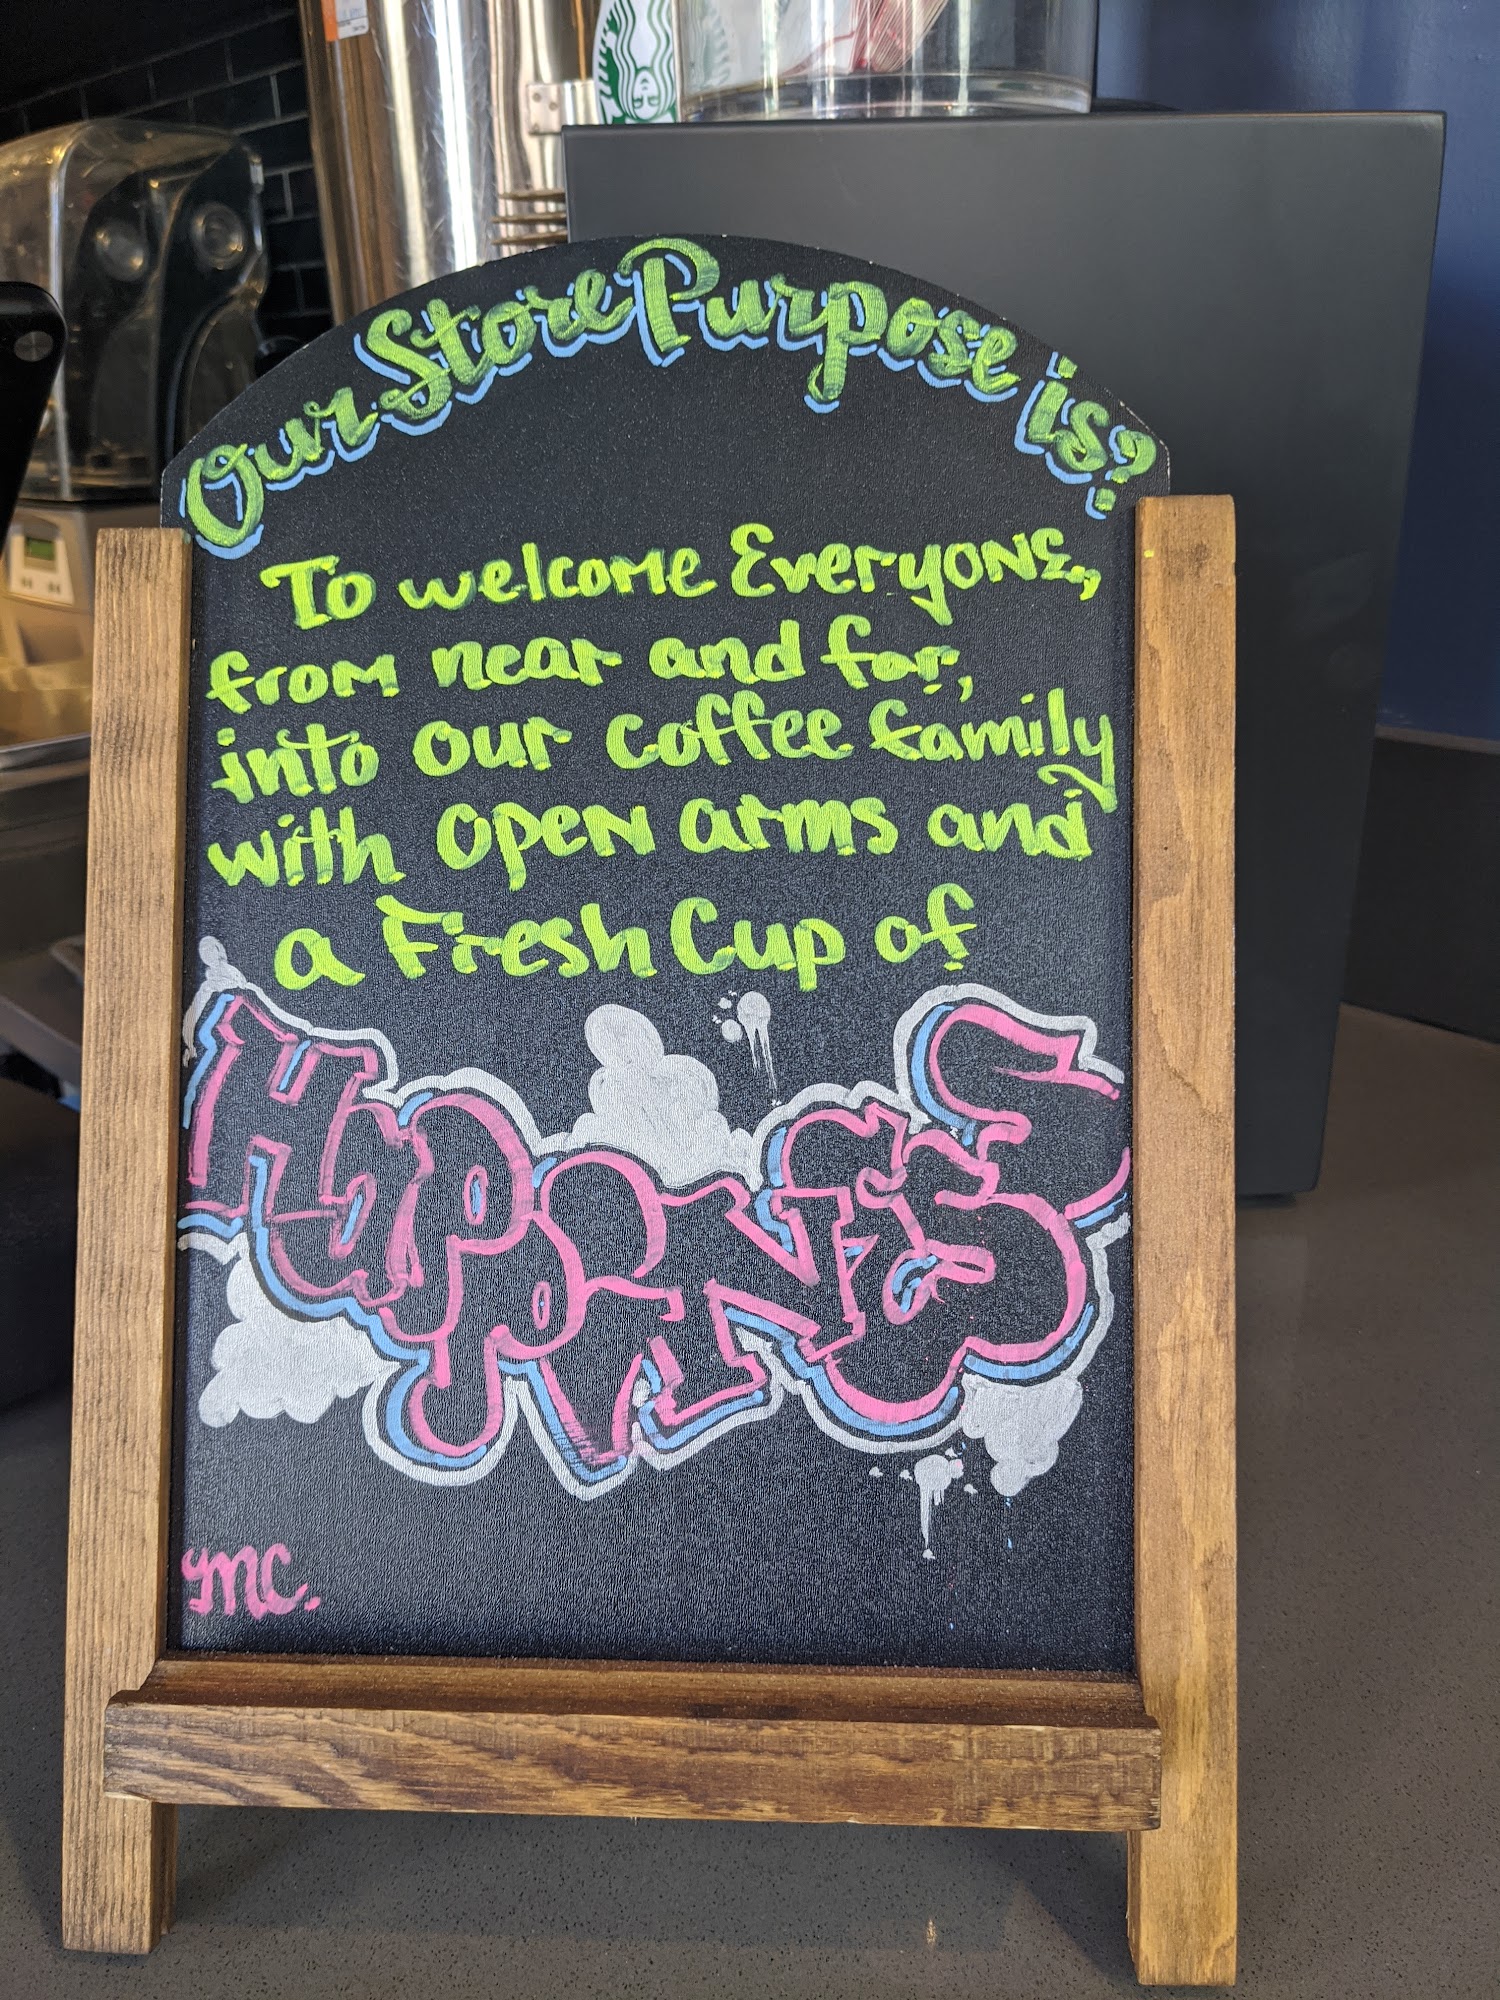 Our Store Purpose is?
To welcome EveryoNE,
from near and far,
into our coffee family
with opeN arms and
a Fresh Cup of
HAPPINESS
MC.